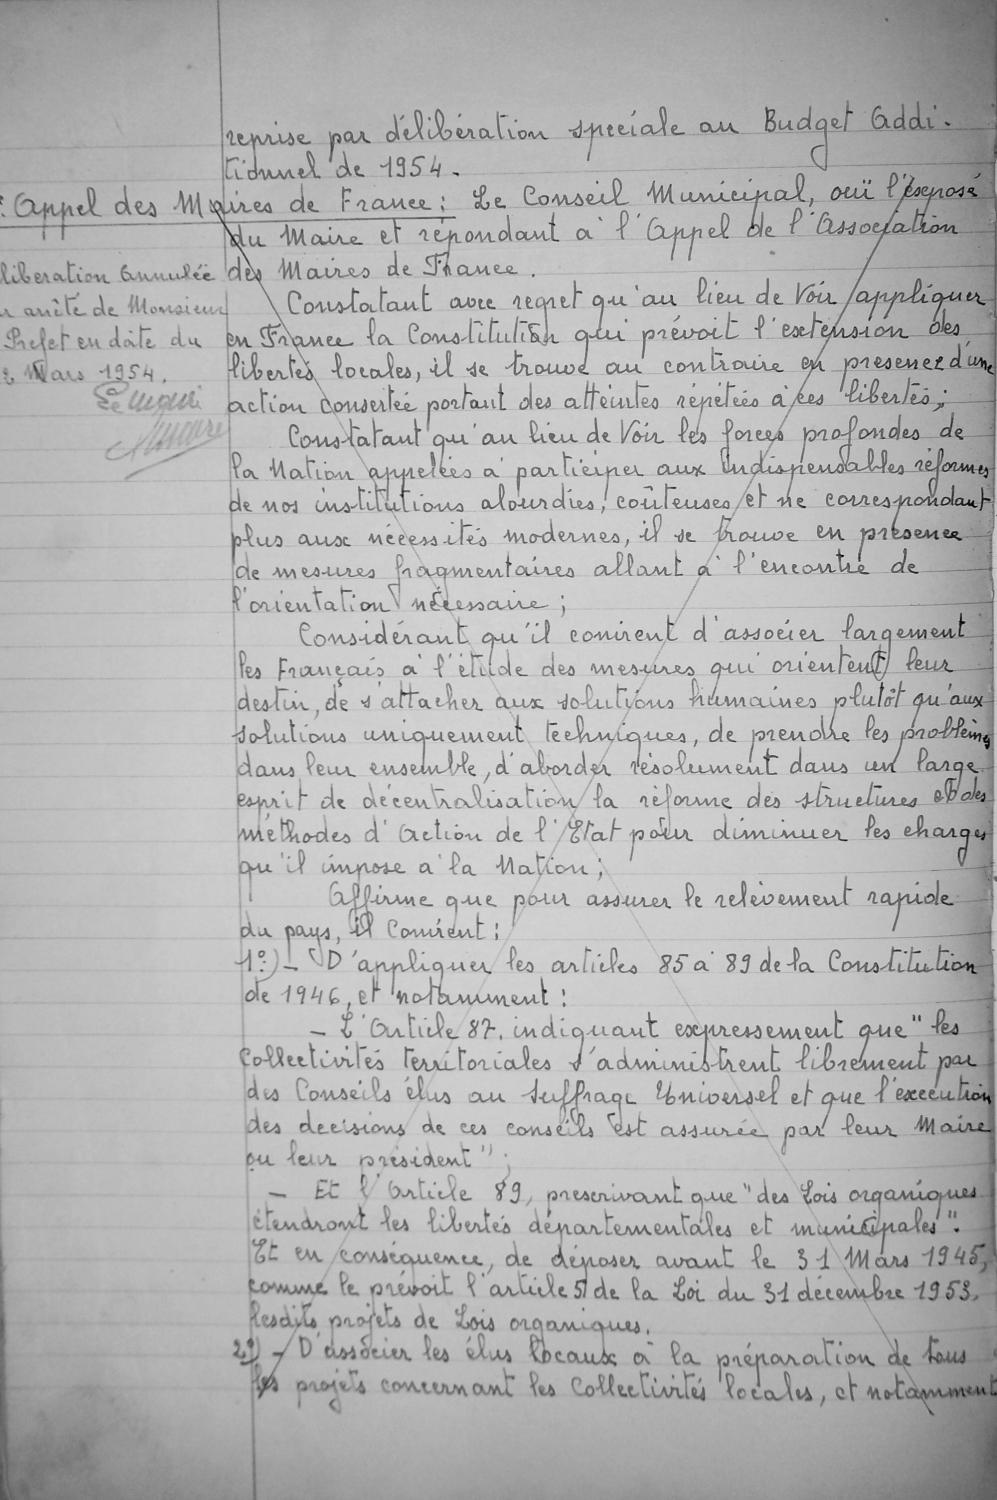 reprise par délibération speciale au Budget Addi-
tionnel de 1954.
Appel des Maires de France: Le Conseil Municipal, ouï l'exposé
du Maire et répondant à l'Appel de l'Association
des Maires de France.
libération annulée
arrêté de Monsieur
Prefet en date du
Mars 1954.
Le Maire
Constatant avec regret qu'au lieu de Voir appliquer
en France la Constitution qui prévoit l'extension des
libertés locales, il se trouve au contraire en presence d'une
action consertée portant des atteintes répétées à ces libertés;
Constatant qu'au lieu de Voir les forces profondes de
la Nation appelées à participer aux indispensables réformes
de nos institutions alourdies, coûteuses et ne correspondant
plus aux nécessités modernes, il se trouve en présence
de mesures fragmentaires allant à l'encontre de
l'orientation nécessaire;
Considérant qu'il convient d'associer largement
les Français à l'étude des mesures qui orientent leur
destin, de s'attacher aux solutions humaines plutôt qu'aux
solutions uniquement techniques, de prendre les problèmes
dans leur ensemble, d'aborder résolument dans un large
esprit de décentralisation la réforme des structures et des
méthodes d'Action de l'Etat pour diminuer les charges
qu'il impose à la Nation;
Affirme que pour assurer le relèvement rapide
du pays, il convient:
1°)- D'appliquer les articles 85 à 89 de la Constitution
de 1946, et notamment:
- L'Article 87. indiquant expressement que "les
Collectivités territoriales s'administrent librement par
des Conseils élus au Suffrage Universel et que l'execution
des decisions de ces conseils est assurée par leur Maire
ou leur président";
- Et l'Article 89, prescrivant que "des Lois organiques
étendront les libertés départementales et municipales".
Et en conséquence, de déposer avant le 31 Mars 1945,
comme le prévoit l'article 51 de la Loi du 31 décembre 1953,
lesdits projets de Lois organiques.
2°)- D'associer les élus locaux à la préparation de tous
les projets concernant les Collectivités locales, et notamment